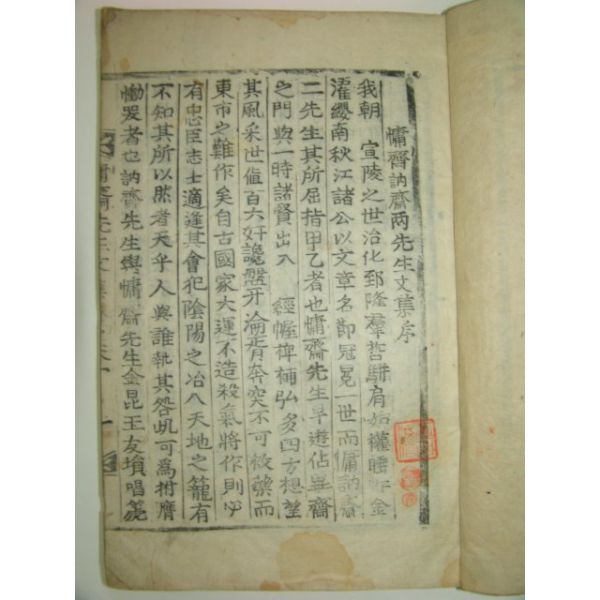 慵齋訥齋兩先生文集序
我朝 宣陵之世治化郅隆羣哲騈肩如權睡軒金
濯纓南秋江諸公以文章名節冠冕一世而慵訥齋
二先生其所屈指甲乙者也慵齋先生早遊佔畢齋
之門與一時諸賢出入 經幄裨補弘多四方想望
其風采世値百六奸讒盤牙淪胥奔突不可救藥而
東市之難作矣自古國家大運不造殺氣將作則必
有忠臣志士適逢其會犯陰陽之冶入天地之籠有
不知其所以然者天乎人與誰執其咎吼可爲拊膺
慟哭者也訥齋先生與慵齋先生金昆玉友塤唱篪